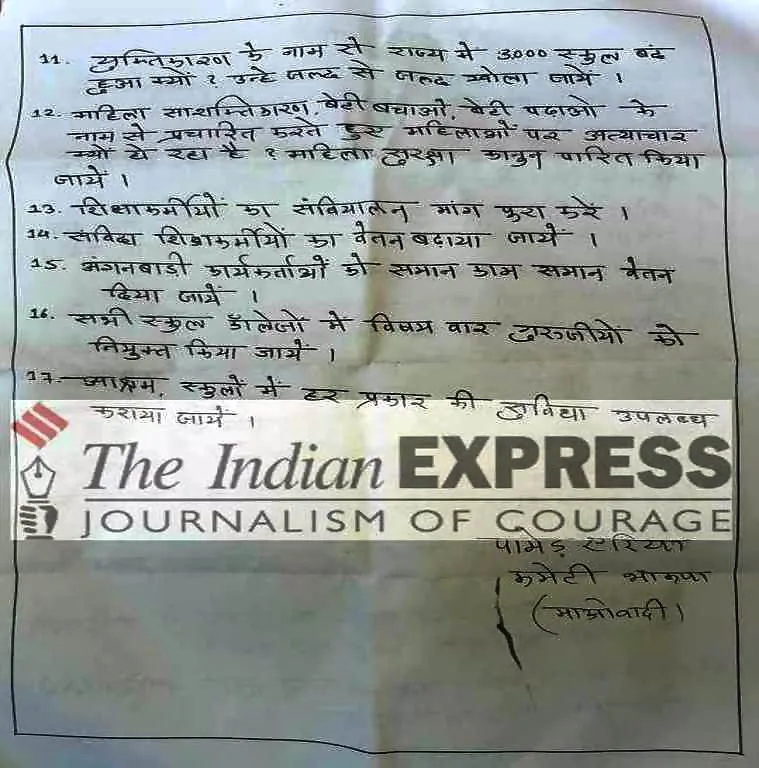 11. युक्तिकारण के नाम से राज्य में 3000 स्कुल बंद
हुआ क्यों ? उन्हे जल्द से जल्द खोला जायें ।
12. महिला साशक्तिकारण, बेटी बचाओ, बेटी पढाओ के
नाम से प्रचारित करते हुए महिलाओं पर अत्याचार
क्यों हो रहा है ? महिला सुरक्षा कानुन पारित किया
जायें ।
13. शिक्षाकर्मीयों का संवियालन मांग पुरा करें ।
14. संविदा शिक्षाकर्मीयों का वेतन बढाया जायें ।
15. अंगनबाडी कार्यकर्ताओं को समान काम समान वेतन
दिया जायें ।
16. सभी स्कुल कॉलेजों में विषय वार गुरुजीयों को
नियुक्त किया जायें ।
17. आश्रम, स्कुलों में हर प्रकार की सुविधा उपलब्ध
कराया जायें ।
The Indian EXPRESS
JOURNALISM OF COURAGE
पामेड़ एरिया
कमेटी भाकपा
(माओवादी)